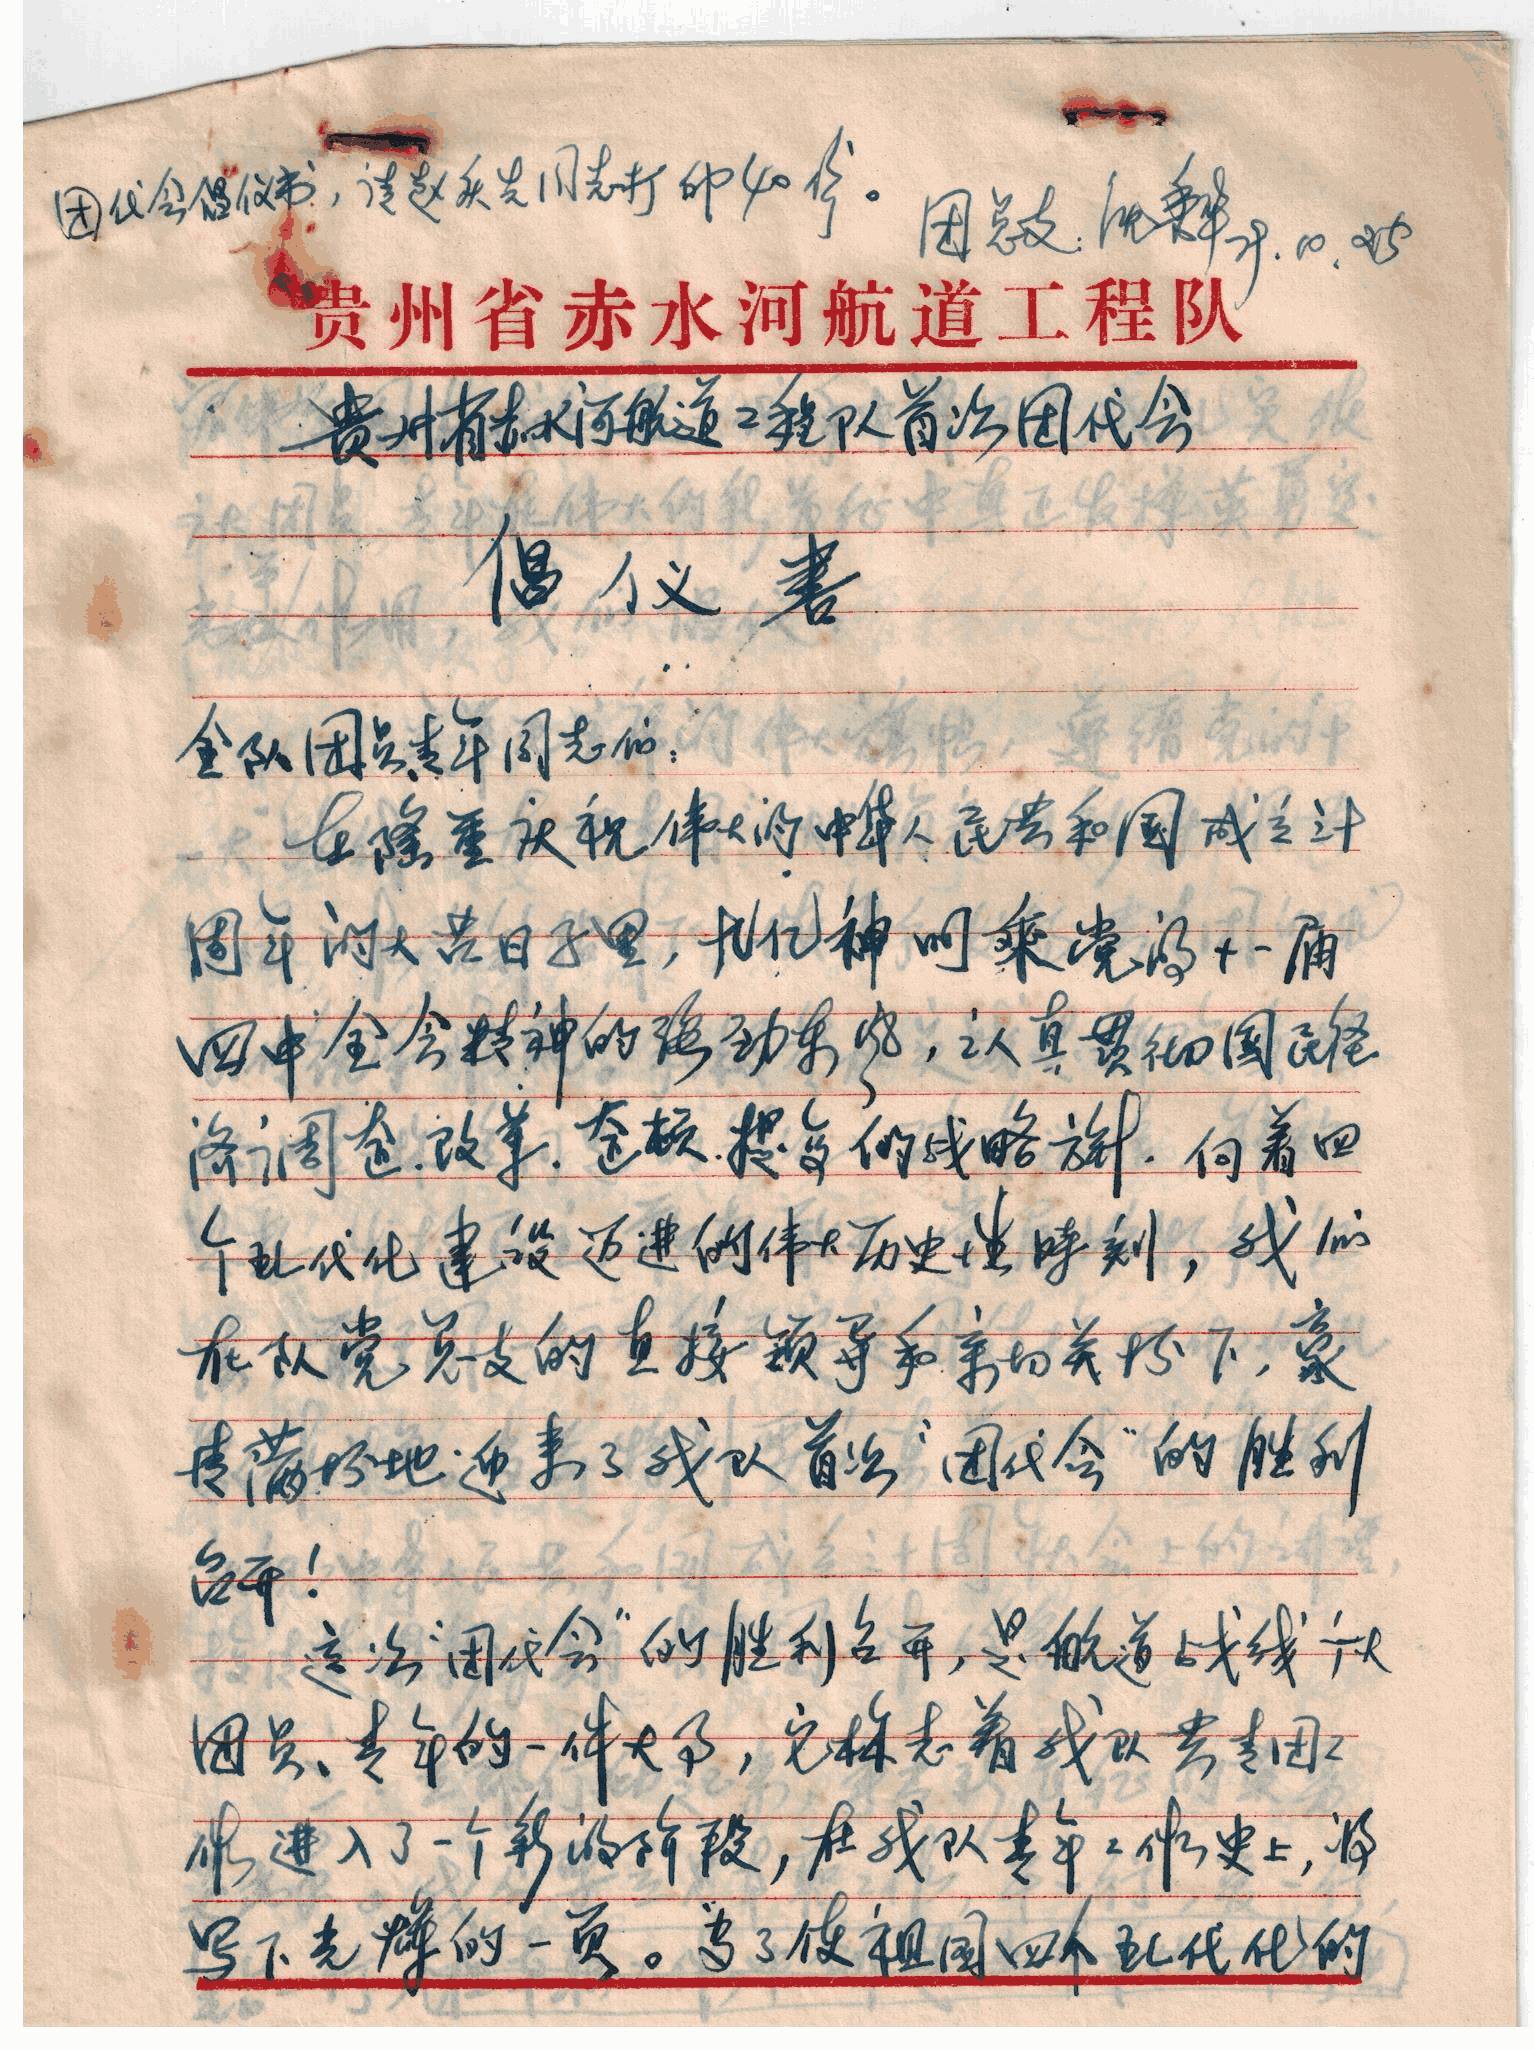 团代会倡仪书，请赵庆先同志打印40份。
团总支：沈秉华79.10.25
贵州省赤水河航道工程队
贵州省赤水河航道工程队首次团代会
倡仪书
全队团员、青年同志们：
在隆重庆祝伟大的中华人民共和国成立卅
周年的大喜日子里，九亿神州乘党的十一届
四中全会精神的强劲东风，认真贯彻国民经
济调整、改革、整顿、提高的战略方针，向着四
个现代化建设迈进的伟大历史性时刻，我们
在队党总支的直接领导和亲切关怀下，豪
情满怀地迎来了我队首次“团代会”的胜利
召开！
这次“团代会”的胜利召开，是航道战线广大
团员、青年的一件大事，它标志着我队共青团工
作进入了一个新的阶段，在我队青年工作史上，将
写下光辉的一页。为了使祖国四个现代化的